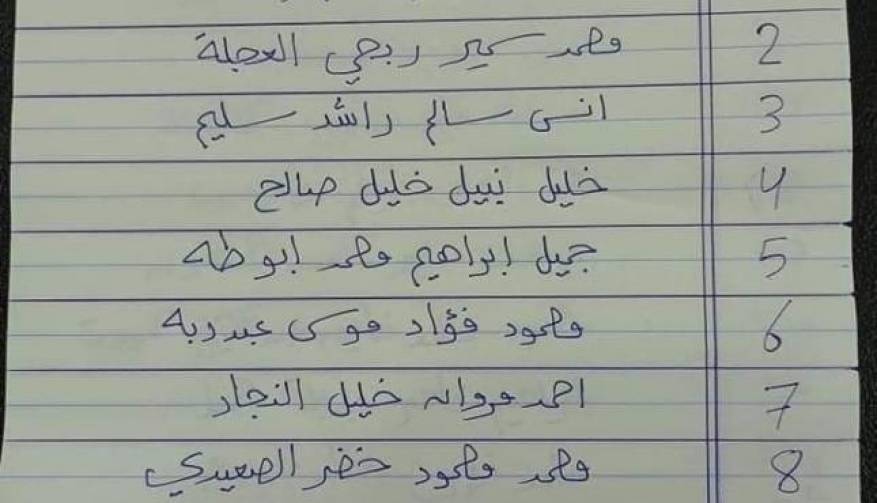 2 محمد سمير ربحي العجلة
3 انس سالم راشد سليم
4 خليل نبيل خليل صالح
5 جميل إبراهيم محمد ابو طه
6 محمود فؤاد موسى عبد ربه
7 احمد مروان خليل النجار
8 محمد محمود خضر الصعيدي